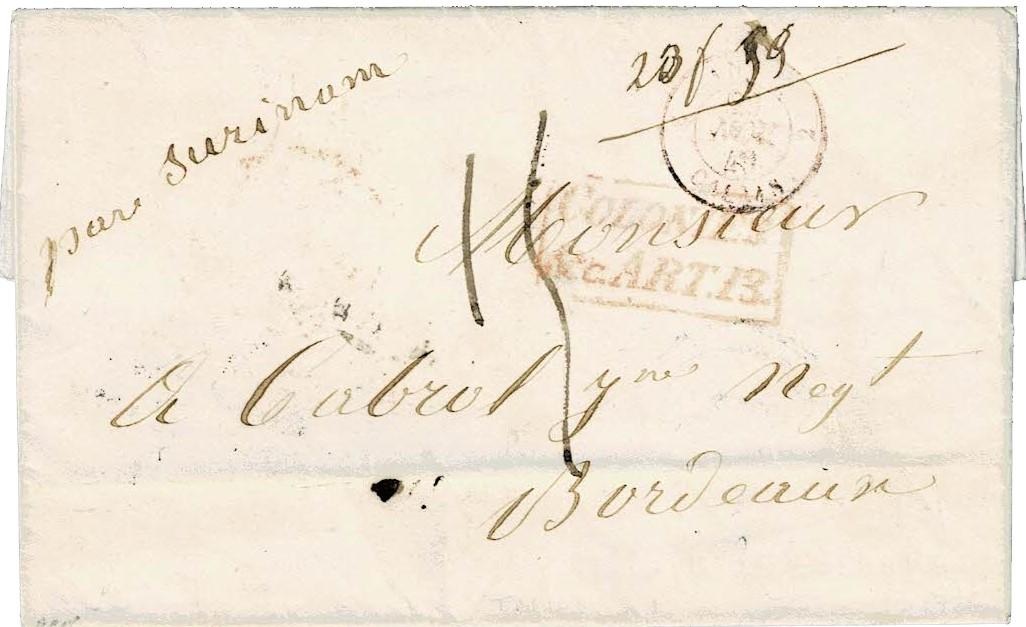 par Surinam
23 f
15
CALAIS
COLONIES
&c. ART. 13.
Monsieur
A Cabrol jne Negt
Bordeaux